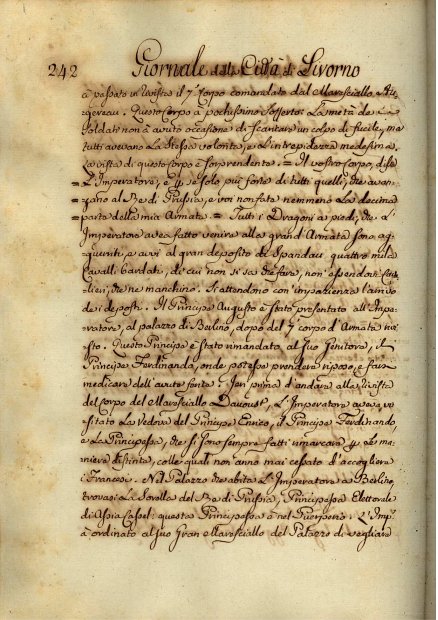 242 Giornale della Città di Livorno
à passato in rivista il 7º Corpo comandato dal Maresciallo Au-
gereau. Questo Corpo à pochissimo sofferto: La metà de
Soldati non à avuto occasione di scantare un colpo di fucile, ma
tutti avevano La stessa volontà, e L'intrepidezza medesima.
La vista di questo corpo è sorprendente. = Il vostro Corpo, disse
= L'Imperatore, è per se solo più forte di tutti quelli, che avan-
= zano al Re di Prussia, e voi non fate nemmeno La decima
parte della mia Armata. = Tutti i Dragoni a piedi, che L'
Imperatore avea fatto venire alla grand'Armata sono ag-
guerriti, e avvi al gran deposito di Spandau quattro mila
Cavalli bardati, di cui non si sa che fare, non essendovi Cava-
lieri, che ne manchino. Si attendono con impazienza l'arrivo
de i deposti. Il Principe Augusto è stato presentato all'Impe-
ratore, al palazzo di Berlino, dopo del 7 corpo d'Armata
Questo Principe è stato rimandato al suo Genitore, il
Principe Ferdinando, onde potesse prendere riposo, e farsi
medicare dell'avute ferite. Jeri prima d'andare alla rivista
del Corpo del Maresciallo Davoust, L'Imperatore avea vi-
sitato La Vedova del Principe Enrico, il Principe Ferdinando
e La Principessa, che si sono sempre fatti rimarcare per la ma-
niera distinta, colle quali non anno mai cessato d'accogliere
i Francesi. Nel Palazzo che abita L'Imperatore a Berlino,
trovasi La Sorella del Re di Prussia, Principessa Elettorale
di Assia Cassel: questa Principessa è nel Puerperio. L'Imp.
à ordinato al suo Gran Maresciallo del Palazzo di vegliare